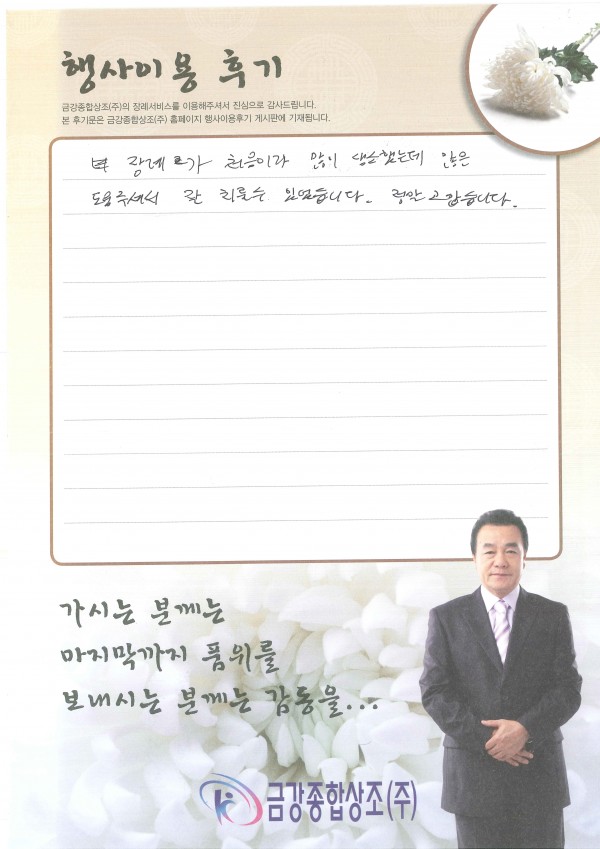 행사이용 후기
금강종합상조(주)의 장례서비스를 이용해주셔서 진심으로 감사드립니다.
본 후기문은 금강종합상조(주) 홈페이지 행사이용후기 게시판에 기재됩니다.
장례 가 처음이라 많이 생소했는데 많은
도움주셔서 잘 치룰수 있었습니다. 정말 고맙습니다.
가시는 분께는
마지막까지 품위를
보내시는 분께는 감동을...
금강종합상조(주)